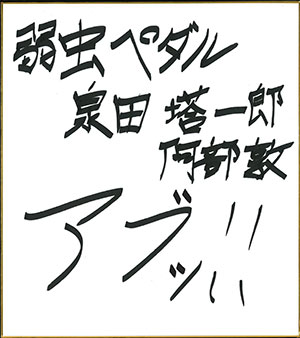 弱虫ペダル
泉田 塔一郎
阿部敦
アブッ!!